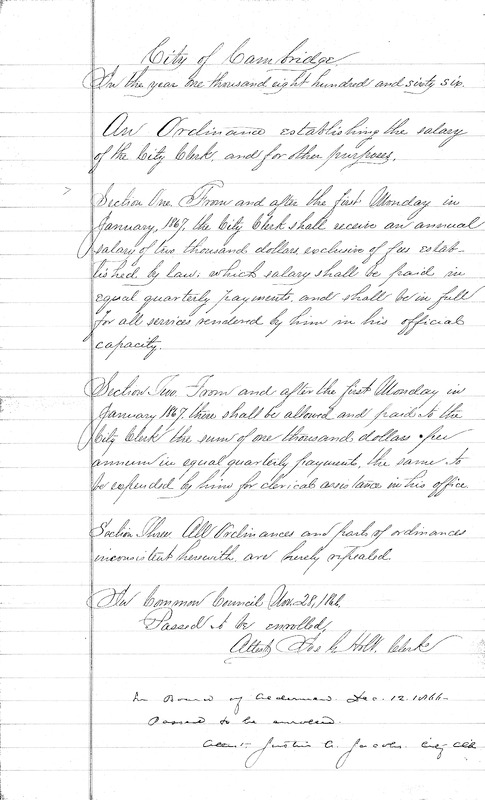 City of Cambridge.
In the year one thousand eight hundred and sixty six.
An Ordinance establishing the salary
of the City Clerk, and for other purposes.
Section One. From and after the first Monday in
January, 1867, the City Clerk shall receive an annual
salary of two thousand dollars, exclusive of fees estab-
lished by law; which salary shall be paid in
equal quarterly payments, and shall be in full
for all services rendered by him in his official
capacity.
Section Two. From and after the first Monday in
January 1867, there shall be allowed and paid to the
City Clerk the sum of one thousand dollars per
annum in equal quarterly payments, the same to
be expended by him for clerical assistance in his office.
Section Three. All Ordinances and parts of ordinances
inconsistent herewith, are hereby repealed.
In Common Council Nov. 28, 1866.
Passed to be enrolled,
Attest, Jos. G. Holt, Clerk
In Board of Aldermen. Dec. 12. 1866.
Passed to be enrolled.
Attest. Justin A. Jacobs. City Clk